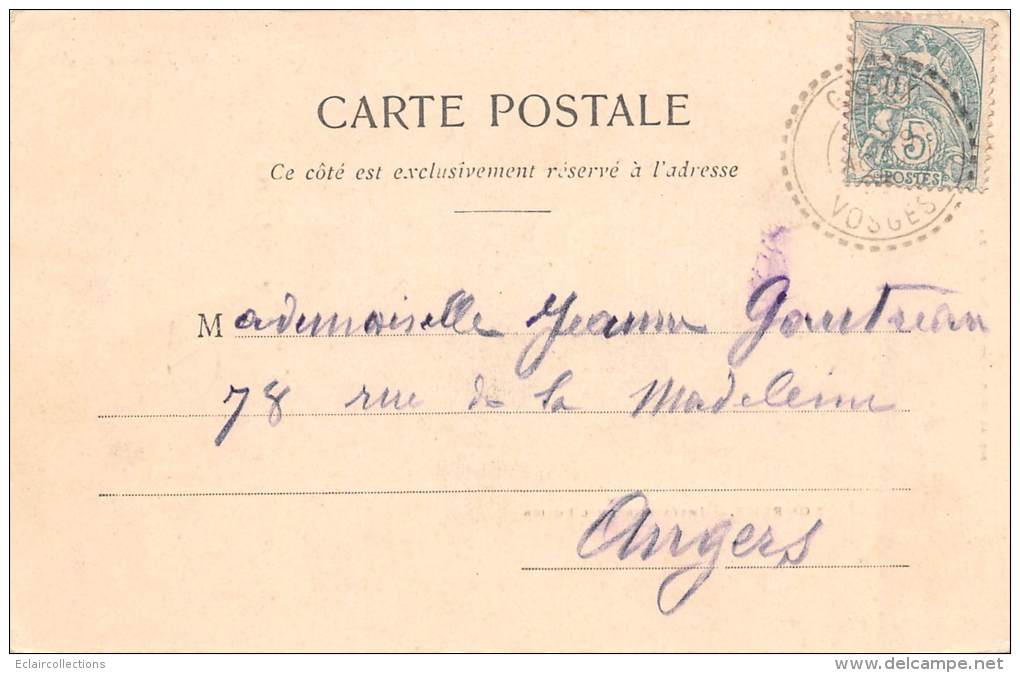 CARTE POSTALE
Ce côté est exclusivement réservé à l'adresse
5c
POSTES
VOSGES
Mademoiselle Jeanne Gautreau
78 rue de la Madeleine
Angers
Eclaircollections
www.delcampe.net